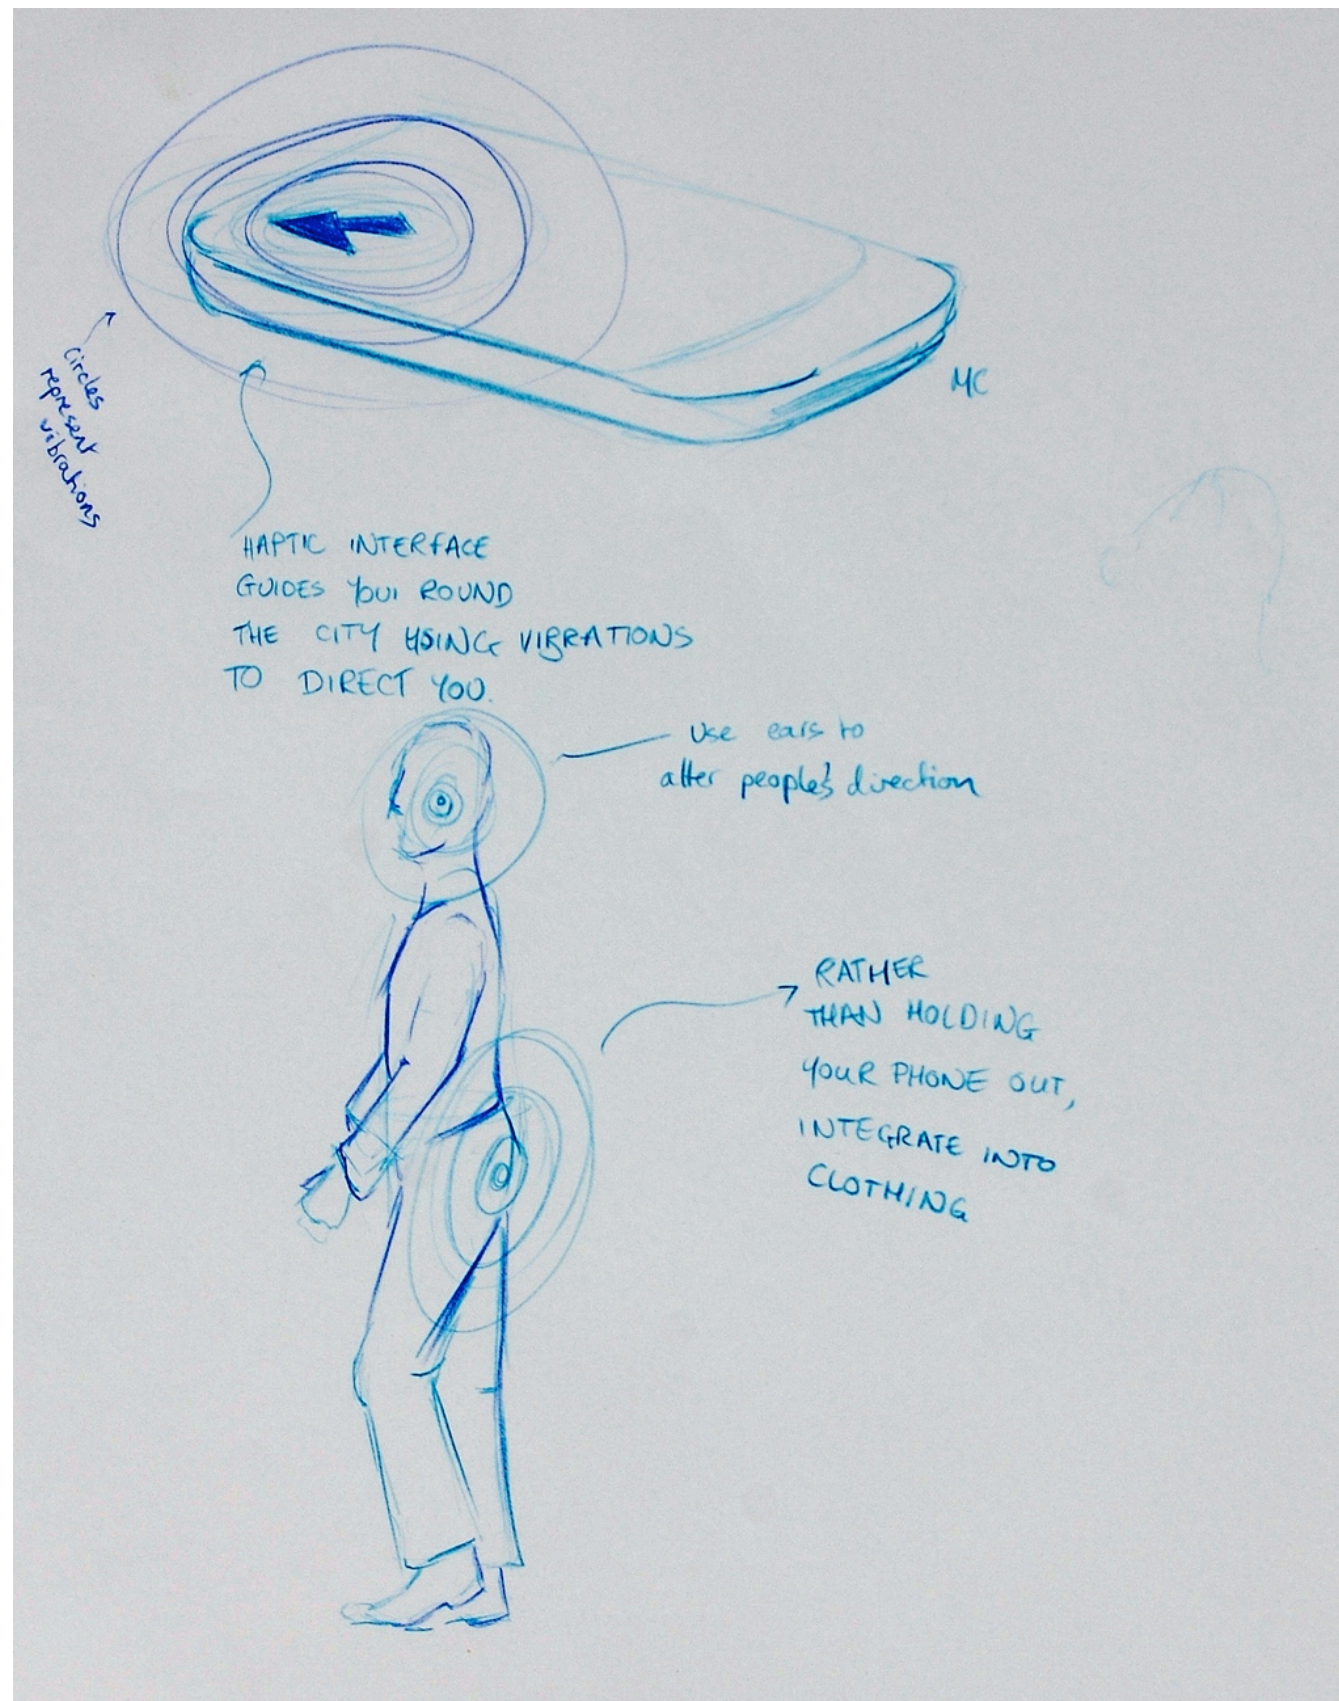 circles
represent
vibrations
MC
HAPTIC INTERFACE
GUIDES YOUR ROUND
THE CITY USING VIBRATIONS
TO DIRECT YOU.
use ears to
alter people's direction
RATHER
THAN HOLDING
YOUR PHONE OUT,
INTEGRATE INTO
CLOTHING